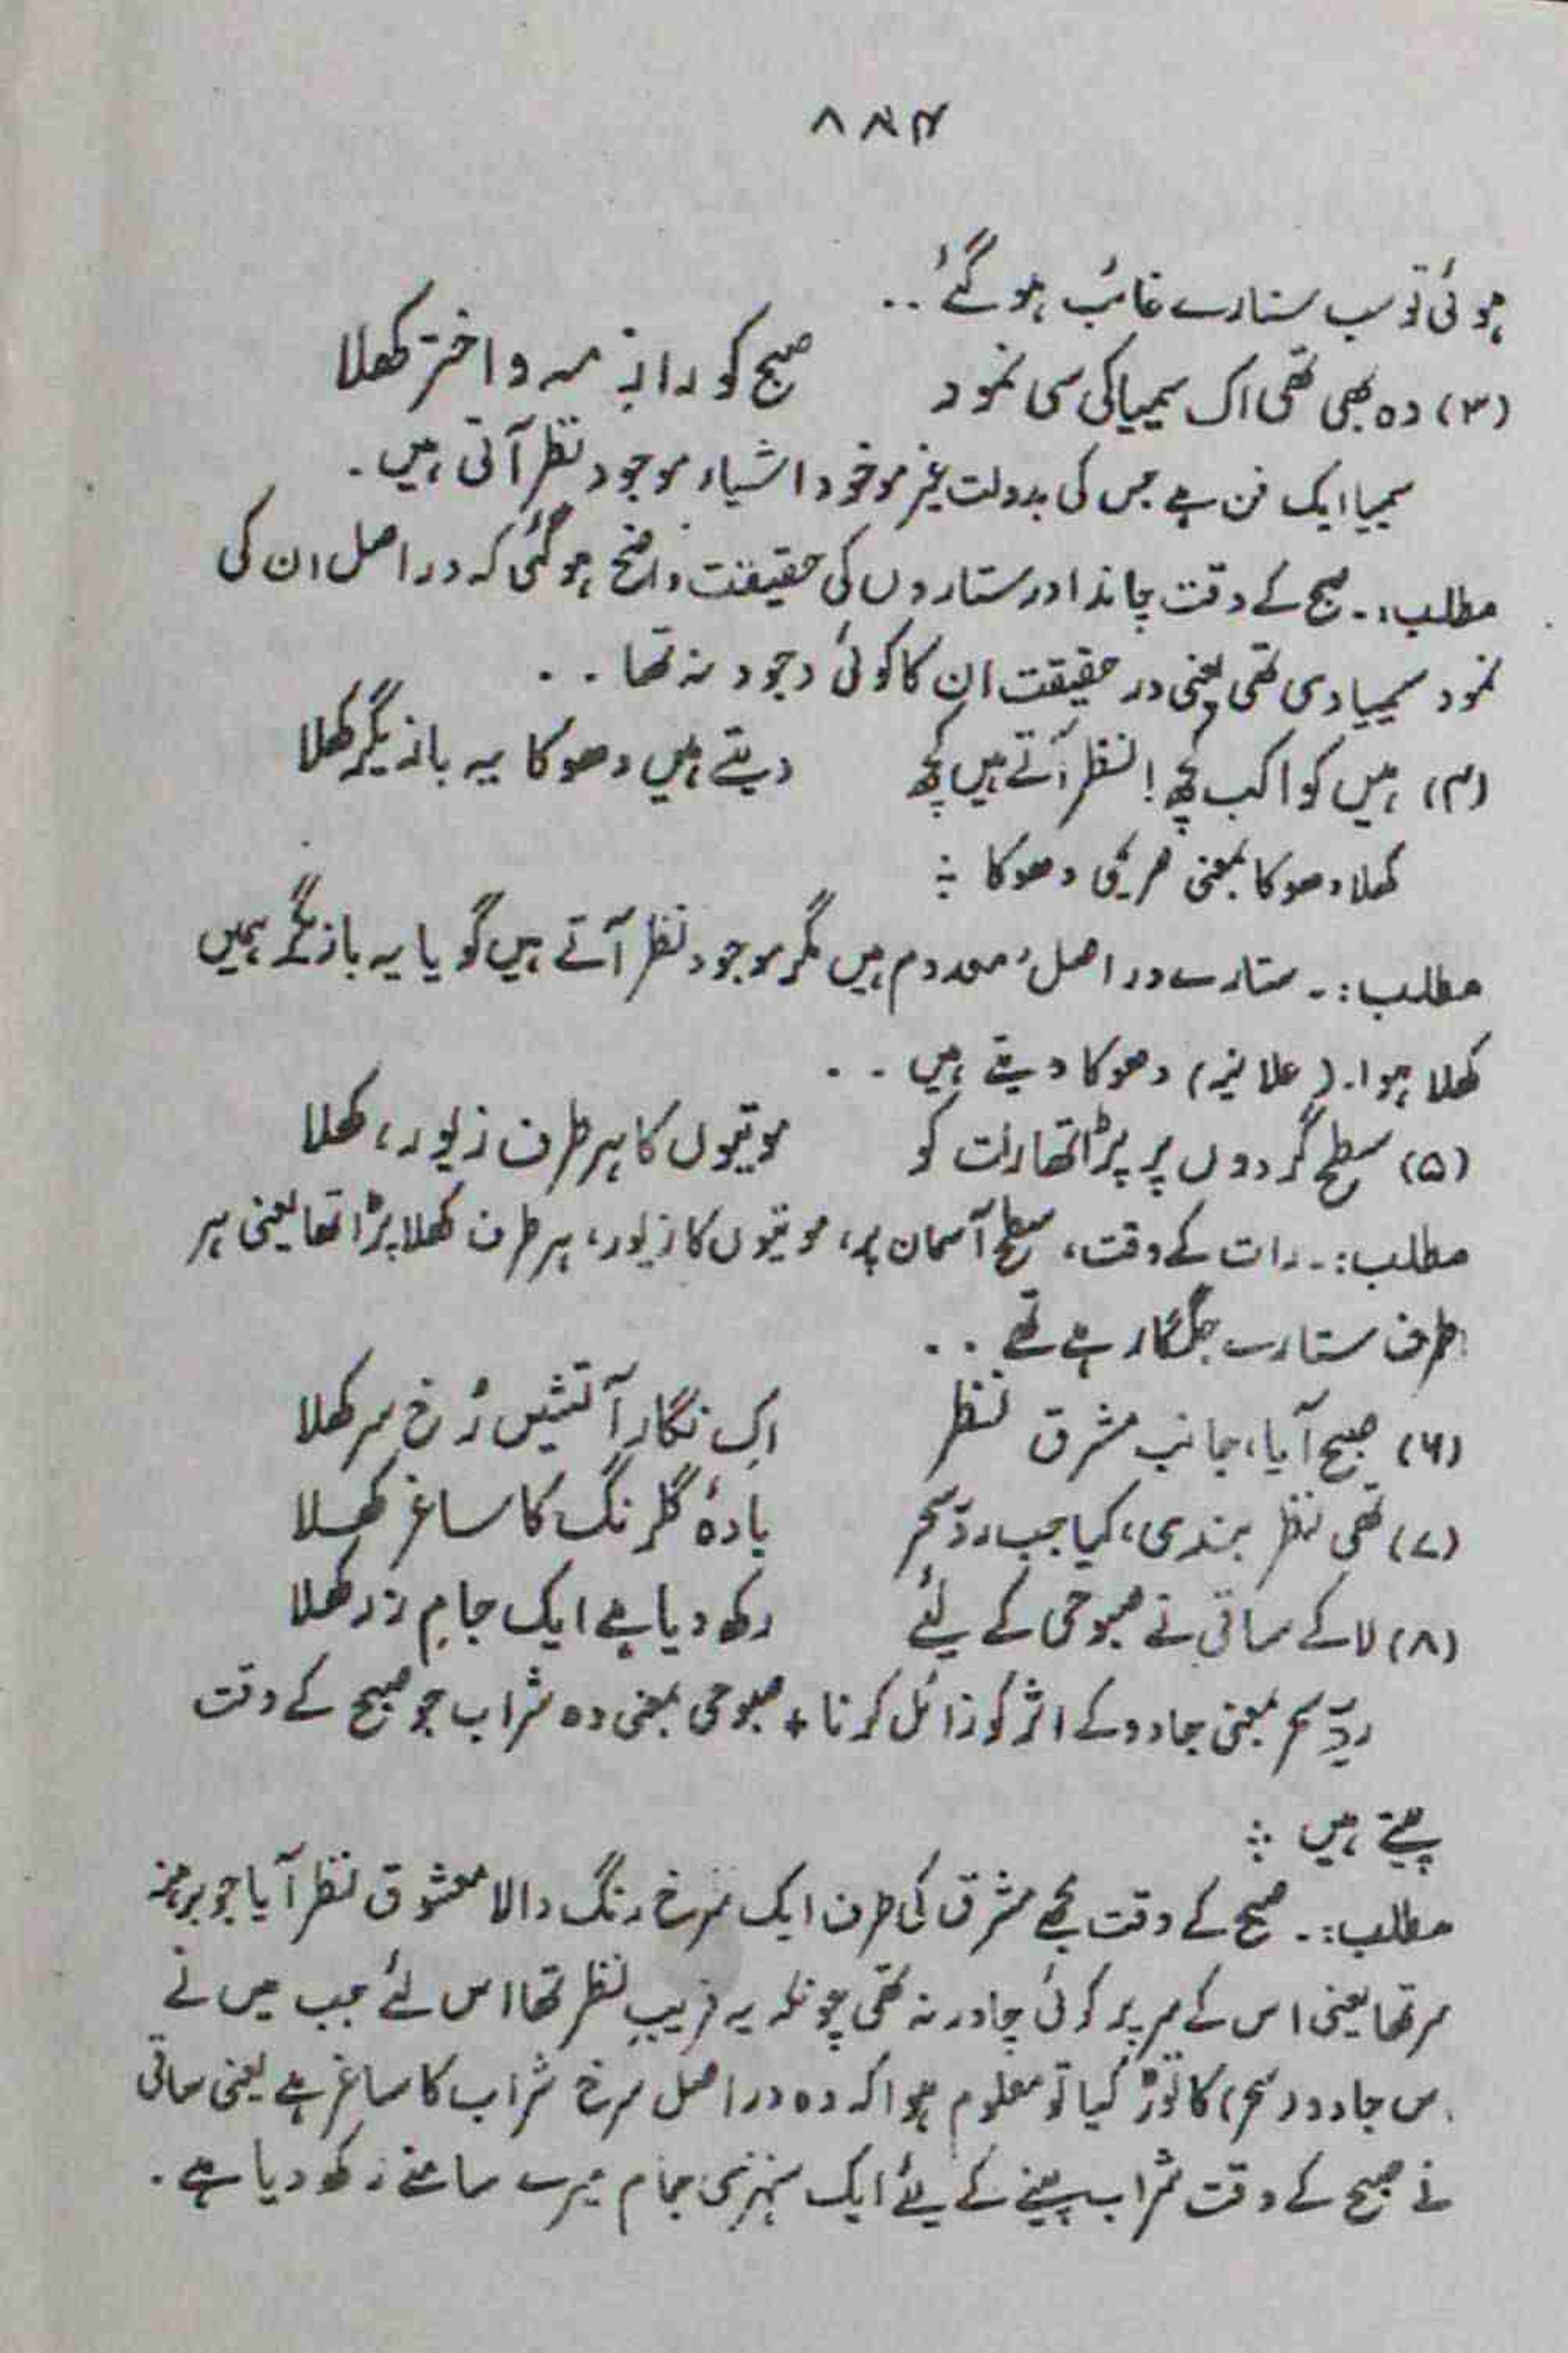 ۸۸۴
ہوئی تو سب ستارے غائب ہوگئے ..
(۳) وہ بھی تھی اک سیمیا کی سی نمود صبح کو رازِ مہ و اختر کھلا
سیمیا ایک فن ہے جس کی بدولت غیر موجود اشیاء موجود نظر آتی ہیں .
مطلب:۔ صبح کے وقت چاند اور ستاروں کی حقیقت واضح ہوگئی کہ دراصل ان کی
نمود سیمیاوی تھی یعنی درحقیقت ان کا کوئی وجود نہ تھا ..
(۴) ہیں کواکب کچھ! نظر آتے ہیں کچھ دیتے ہیں دھوکا یہ بازیگر کھلا
کھلا دھوکا بمعنی صریحی دھوکا ؞
مطلب:۔ ستارے دراصل معدوم ہیں مگر موجود نظر آتے ہیں گویا یہ بازیگر ہمیں
کھلا ہوا۔ (علانیہ) دھوکا دیتے ہیں ..
(۵) سطحِ گردوں پر پڑا تھا رات کو موتیوں کا ہر طرف زیور، کھلا
مطلب:۔ رات کے وقت، سطح آسمان پر، موتیوں کا زیور، ہر طرف کھلا پڑا تھا یعنی ہر
طرف ستارے جگمگا رہے تھے ..
(۶) صبح آیا، جانب مشرق نظر اک نگارِ آتشیں رُخ سر کھلا
(۷) تھی نظر بندی، کیا جب ردِّ سحر بادۂ گلرنگ کا ساغر کھلا
(۸) لا کے ساقی نے صبوحی کے لیئے رکھ دیا ہے ایک جامِ زر کھلا
ردِّ سحر بمعنی جادو کے اثر کو زائل کرنا + صبوحی بمعنی وہ شراب جو صبح کے وقت
پیتے ہیں ؞
مطلب:۔ صبح کے وقت مجھے مشرق کی طرف ایک سرخ رنگ والا معشوق نظر آیا جو برہنہ
سر تھا یعنی اس کے سر پر کوئی چادر نہ تھی چونکہ یہ فریبِ نظر تھا اس لئے جب میں نے
اس جادو (سحر) کا توڑ کیا تو معلوم ہوا کہ وہ دراصل سرخ شراب کا ساغر ہے یعنی ساقی
نے صبح کے وقت شراب پینے کے لیئے ایک سنہری جام میرے سامنے رکھ دیا ہے .